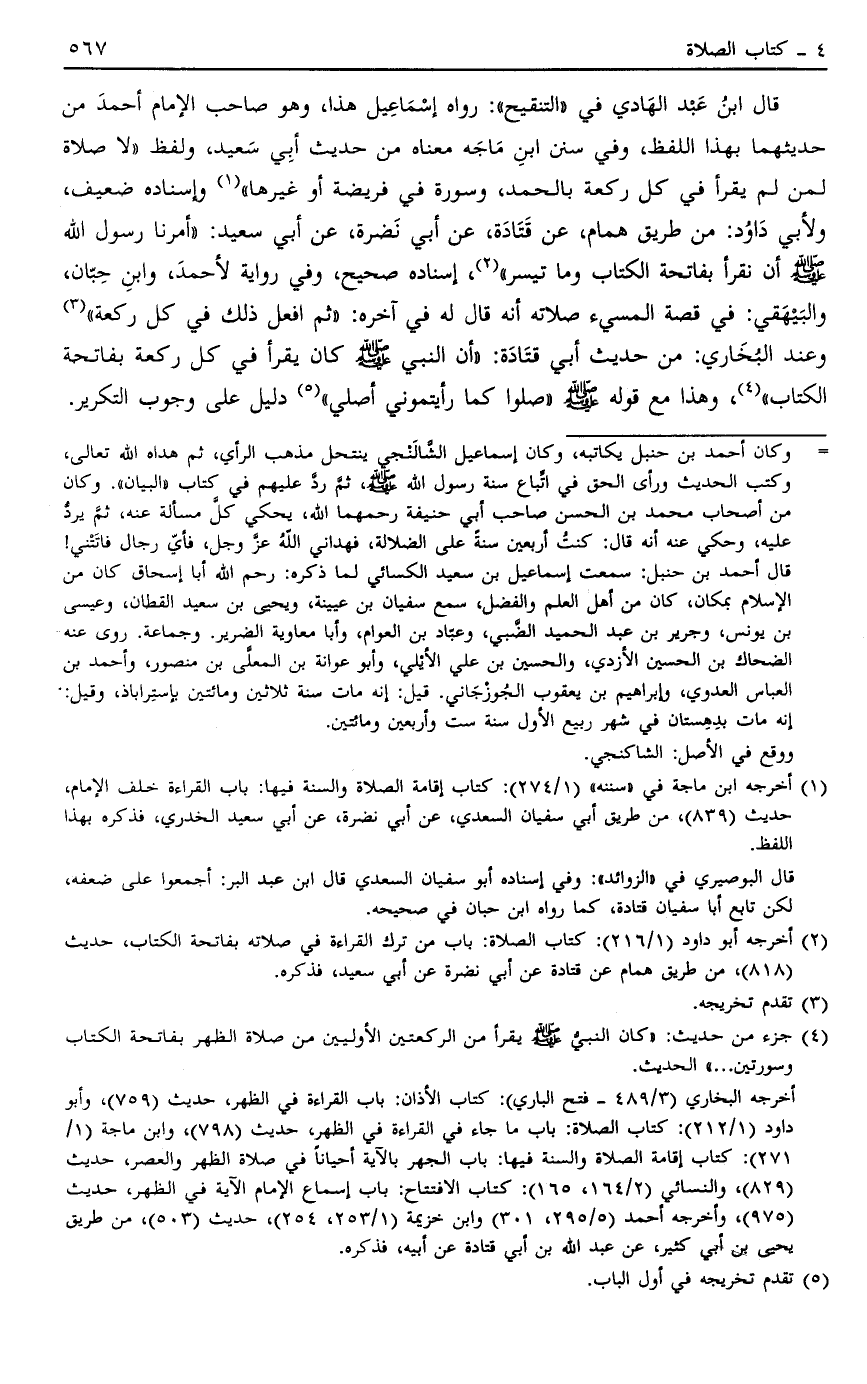 ٤ ـ كتاب الصلاة ٥٦٧
قال ابنُ عَبْد الهَادي في «التنقيح»: رواه إسْمَاعِيل هذا، وهو صاحب الإمام أحمدَ من
حديثهما بهذا اللفظ، وفي سنن ابنِ مَاجَه معناه من حديث أبِي سَعيد، ولفظ «لا صلاة
لمن لم يقرأ في كل ركعة بالحمد، وسورة في فريضة أو غيرها»(١) وإسناده ضعيف،
ولأبي دَاوُد: من طريق همام، عن قَتَادَة، عن أبي نَضرة، عن أبي سعيد: «أمرنا رسول الله
ﷺ أن نقرأ بفاتحة الكتاب وما تيسر»(٢)، إسناده صحيح، وفي رواية لأحمدَ، وابنِ حِبّان،
والبَيْهَقي: في قصة المسيء صلاته أنه قال له في آخره: «ثم افعل ذلك في كل ركعة»(٣)
وعند البُخَاري: من حديث أبي قتَادَة: «أن النبي ﷺ كان يقرأ في كل ركعة بفاتحة
الكتاب»(٤)، وهذا مع قوله ﷺ «صلوا كما رأيتموني أصلي»(٥) دليل على وجوب التكرير.
= وكان أحمد بن حنبل يكاتبه، وكان إسماعيل الشَّالَنْجي ينتحل مذهب الرأي، ثم هداه الله تعالى،
وكتب الحديث ورأى الحق في اتِّباع سنة رسول الله ﷺ، ثمَّ ردَّ عليهم في كتاب «البيان». وكان
من أصحاب محمد بن الحسن صاحب أبي حنيفة رحمهما الله، يحكي كلَّ مسألة عنه، ثمَّ يردُّ
عليه، وحكي عنه أنه قال: كنتُ أربعين سنةً على الضلالة، فهداني اللّهُ عزَّ وجل، فأيّ رجال فاتَتْني!
قال أحمد بن حنبل: سمعت إسماعيل بن سعيد الكسائي لما ذكره: رحم الله أبا إسحاق كان من
الإسلام بمكان، كان من أهل العلم والفضل، سمع سفيان بن عيينة، ويحيى بن سعيد القطان، وعيسى
بن يونس، وجرير بن عبد الحميد الضَّبي، وعبّاد بن العوام، وأبا معاوية الضرير. وجماعة. روى عنه
الضحاك بن الحسين الأزدي، والحسين بن علي الأيْلي، وأبو عوانة بن المعلَّى بن منصور، وأحمد بن
العباس العدوي، وإبراهيم بن يعقوب الجُوزْجَاني. قيل: إنه مات سنة ثلاثين ومائتين بإستِراباذ، وقيل:
إنه مات بدِهِستان في شهر ربيع الأول سنة ست وأربعين ومائتين.
ووقع في الأصل: الشاكنجي.
(١) أخرجه ابن ماجة في «سننه» (٢٧٤/١): كتاب إقامة الصلاة والسنة فيها: باب القراءة خلف الإمام،
حديث (٨٣٩)، من طريق أبي سفيان السعدي، عن أبي نضرة، عن أبي سعيد الخدري، فذكره بهذا
اللفظ.
قال البوصيري في «الزوائد»: وفي إسناده أبو سفيان السعدي قال ابن عبد البر: أجمعوا على ضعفه،
لكن تابع أبا سفيان قتادة، كما رواه ابن حبان في صحيحه.
(٢) أخرجه أبو داود (٢١٦/١): كتاب الصلاة: باب من ترك القراءة في صلاته بفاتحة الكتاب، حديث
(٨١٨)، من طريق همام عن قتادة عن أبي نضرة عن أبي سعيد، فذكره.
(٣) تقدم تخريجه.
(٤) جزء من حديث: «كان النبيُّ ﷺ يقرأ من الركعتين الأوليين من صلاة الظهر بفاتحة الكتاب
وسورتين...» الحديث.
أخرجه البخاري (٤٨٩/٣ ـ فتح الباري): كتاب الأذان: باب القراءة في الظهر، حديث (٧٥٩)، وأبو
داود (٢١٢/١): كتاب الصلاة: باب ما جاء في القراءة في الظهر، حديث (٧٩٨)، وابن ماجة (١/
٢٧١): كتاب إقامة الصلاة والسنة فيها: باب الجهر بالآية أحياناً في صلاة الظهر والعصر، حديث
(٨٢٩)، والنسائي (١٦٤/٢، ١٦٥): كتاب الافتتاح: باب إسماع الإمام الآية في الظهر، حديث
(٩٧٥)، وأخرجه أحمد (٢٩٥/٥، ٣٠١) وابن خزيمة (٢٥٣/١، ٢٥٤)، حديث (٥٠٣)، من طريق
يحيى بن أبي كثير، عن عبد الله بن أبي قتادة عن أبيه، فذكره.
(٥) تقدم تخريجه في أول الباب.